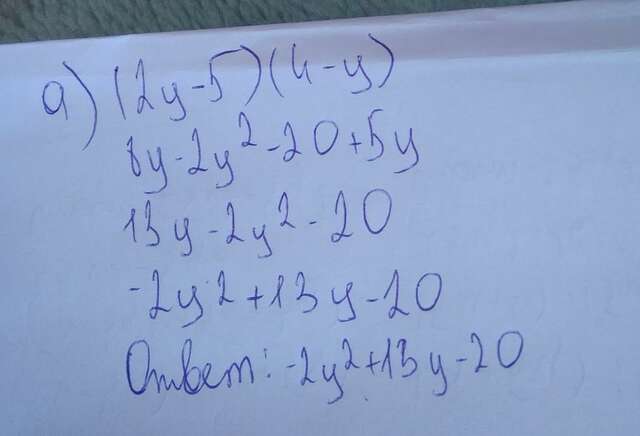 а) (2y-5)(4-y)
8y-2y²-20+5y
13y-2y²-20
-2y²+13y-20
Ответ: -2y²+13y-20